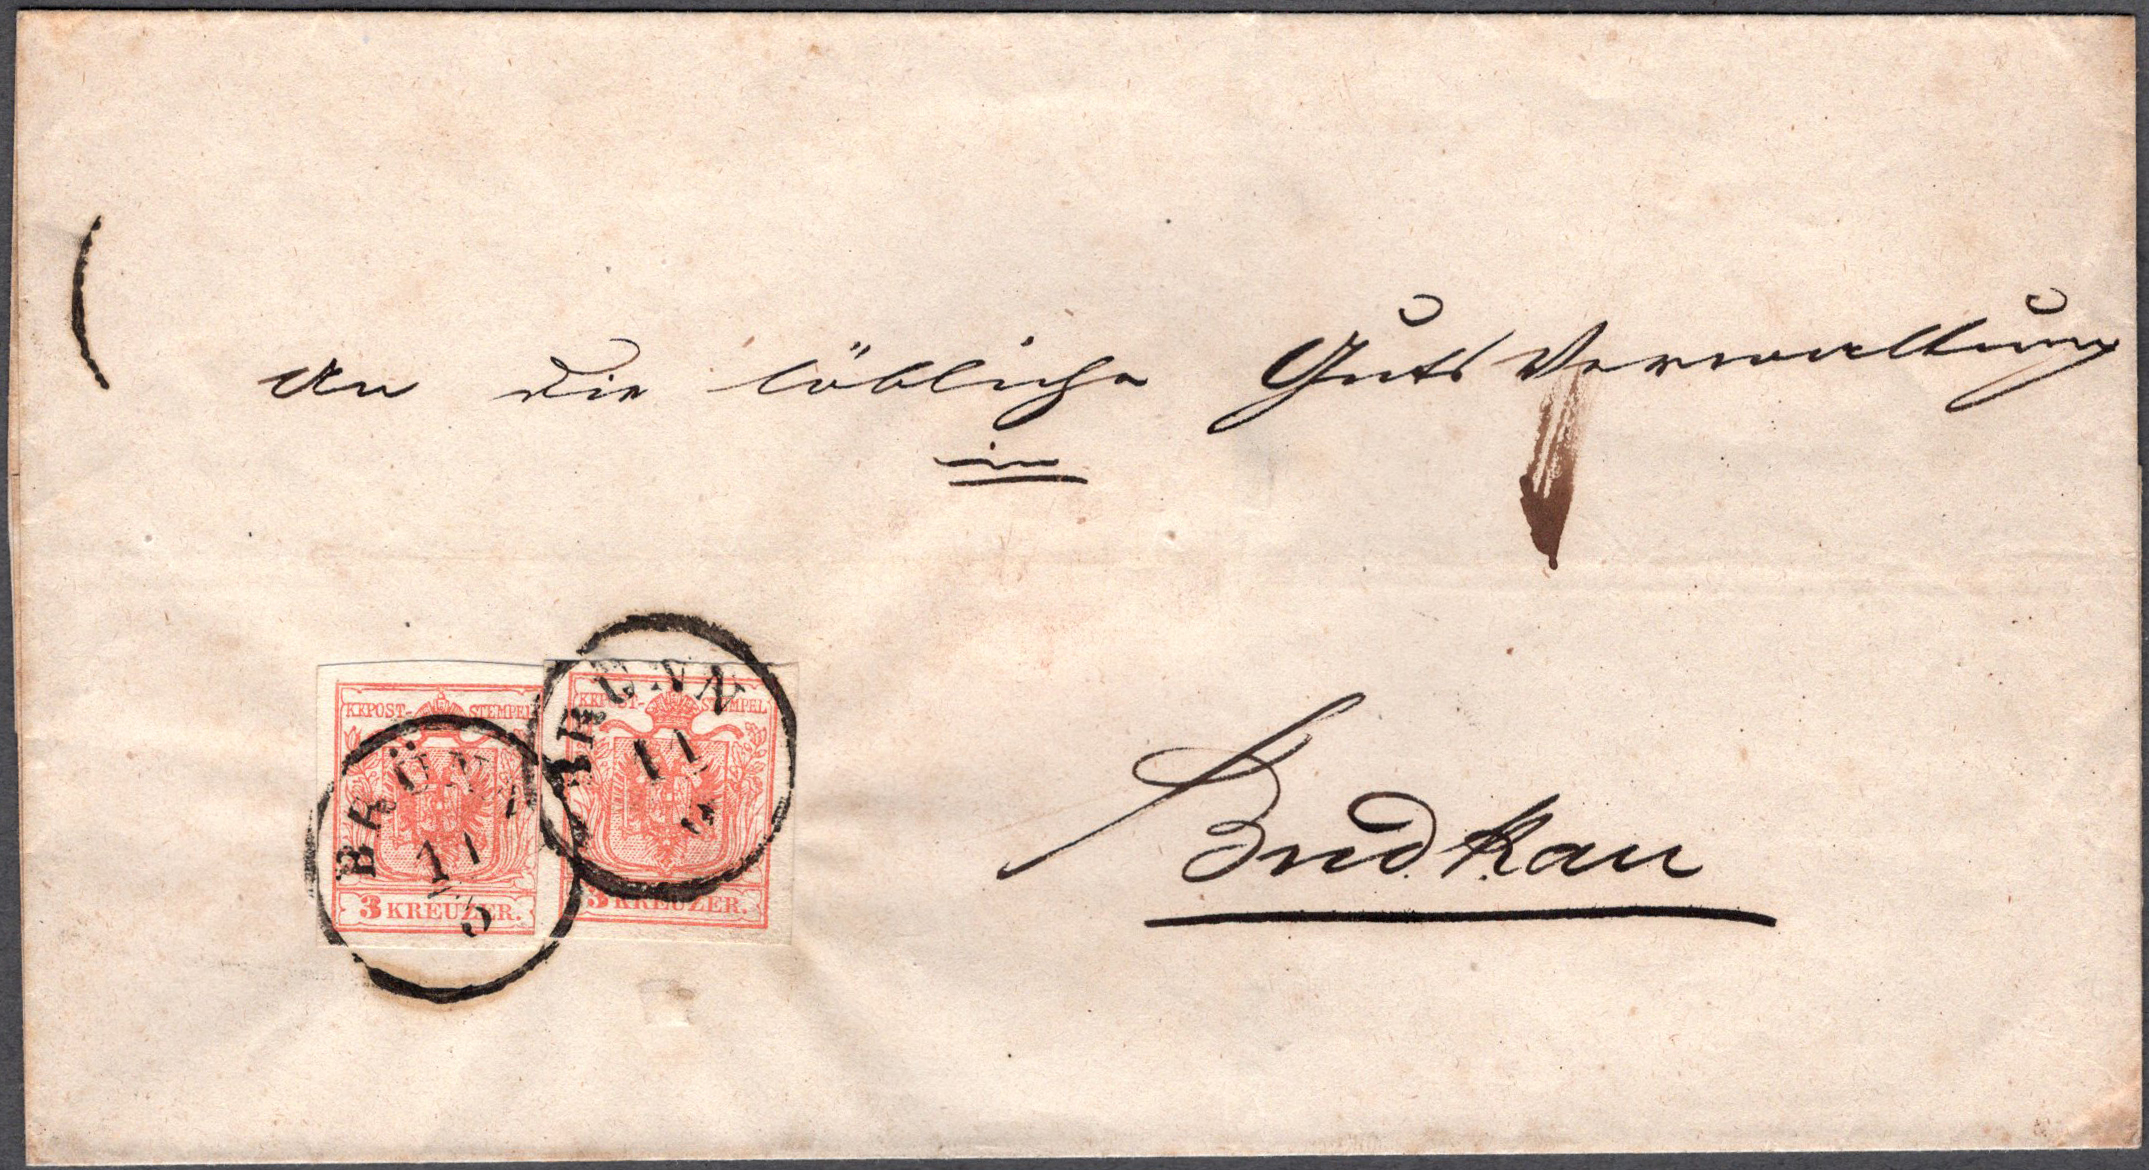 An die löbliche Guts Verwaltung
in
Budkau
KKPOST-STEMPEL
3 KREUZER.
BRÜNN
11
5
KKPOST-STEMPEL
3 KREUZER.
BRÜNN
11